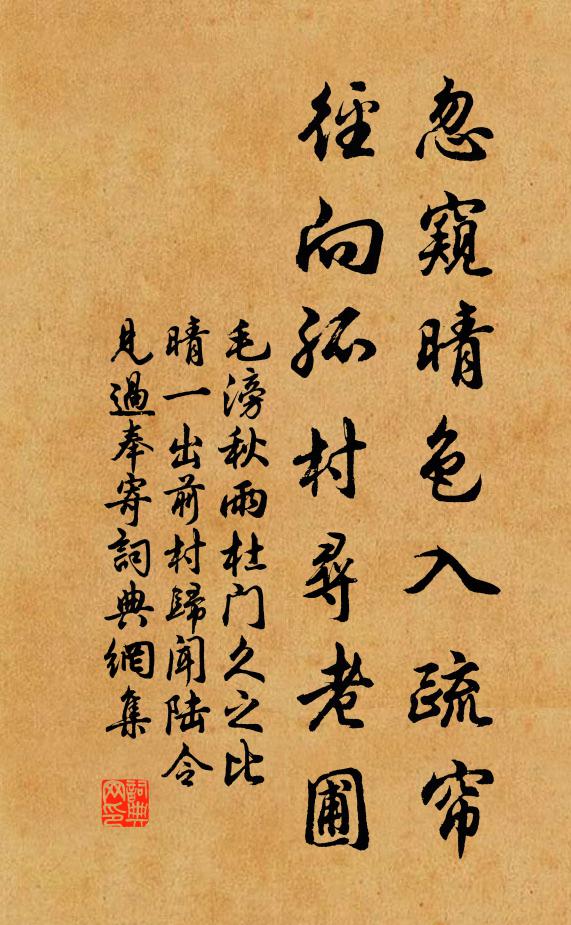 忽窺晴色入疏帘
徑向孤村尋老圃
毛滂秋雨杜门久之比
晴一出前村歸闻陆令
见過奉寄詞典網集
詞典
网印